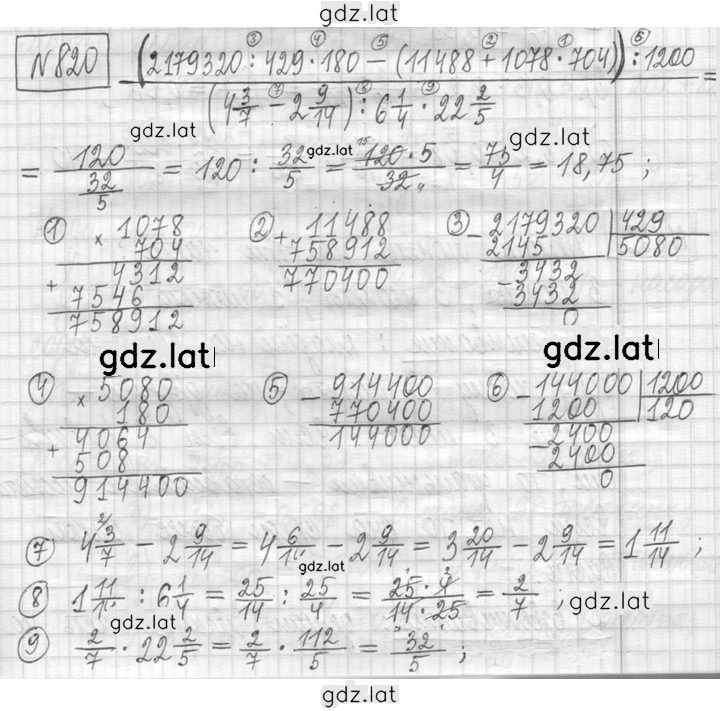 gdz.lat
№820
(2179320 : 429 · 180 − (11488 + 1078 · 704)) : 1200
(4 3/7 − 2 9/14) : 6 1/4 · 22 2/5 =
gdz.lat gdz.lat
= 120 / (32/5) = 120 : 32/5 = 120 · 5 / 32 = 75/4 = 18,75 ;
gdz.lat
① × 1078
704
+ 4312
7546
758912
② + 11488
758912
770400
③ − 2179320 | 429
2145 | 5080
− 3432
3432
0
gdz.lat gdz.lat
④ × 5080
180
+ 4064
508
914400
⑤ − 914400
770400
144000
⑥ − 144000 | 1200
1200 | 120
− 2400
2400
0
⑦ 4 3/7 − 2 9/14 = 4 6/14 − 2 9/14 = 3 20/14 − 2 9/14 = 1 11/14 ;
gdz.lat
⑧ 1 11/14 : 6 1/4 = 25/14 : 25/4 = 25 · 4 / 14 · 25 = 2/7 ;
gdz.lat gdz.lat
⑨ 2/7 · 22 2/5 = 2/7 · 112/5 = 32/5 ;
gdz.lat